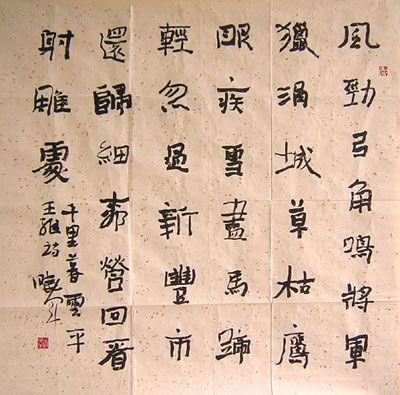 風勁弓角鳴將軍
獵渭城草枯鷹
眼疾雪盡馬蹄
輕忽過新豐市
還歸細柳營回看
射雕處
千里暮雲平
王維詩